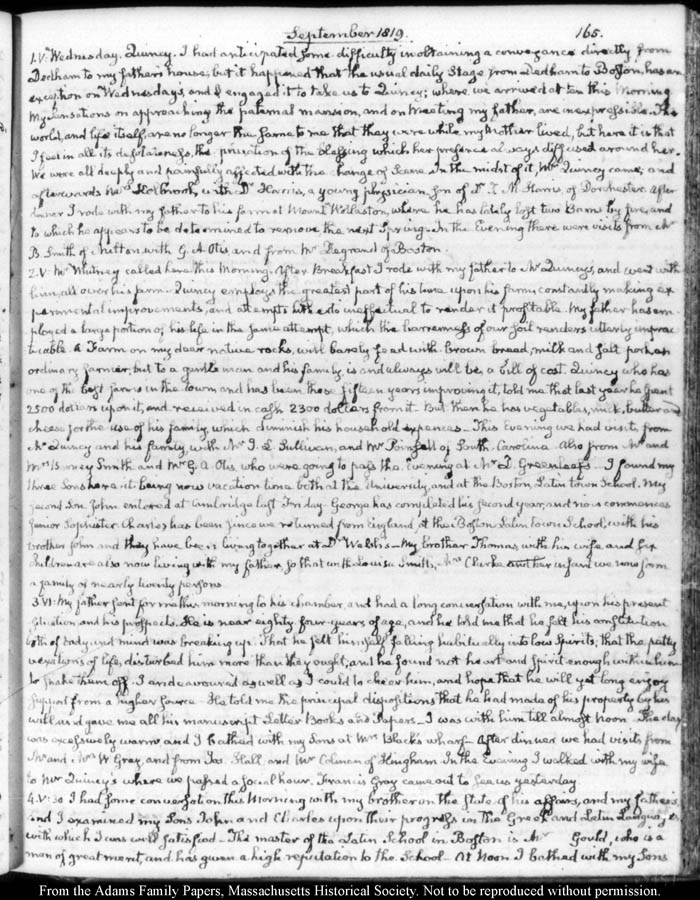 September 1819. 165.
1. V. Wednesday. Quincy. I had anticipated some difficulty in obtaining a conveyance directly from
Dedham to my father's house, but it happened that the usual daily Stage from Dedham to Boston, has an
exception on Wednesdays, and I engaged it to take us to Quincy; where we arrived at ten this Morning
My sensations on approaching the paternal mansion, and on meeting my father, are inexpressible. The
world, and life itself, are no longer the same to me that they were while my Mother lived, but here it is that
I feel in all its desolateness, the privation of the blessing which her presence always diffused around her.
We were all deeply and painfully affected with the change of Scene. In the midst of it, Mr Quincy came, and
afterwards Holbrook, with Dr Harris, a young physician, son of Dr T. M. Harris, of Dorchester. After
dinner I rode with my father to his farm at Mount Wollaston, where he has lately lost two Barns by fire, and
to which he appears to be determined to remove the next Spring. In the Evening there were visits from Mr
B. Smith of Milton, with G. A. Otis and from Mr Degrand of Boston.
2. V. Mr Whitney called here this Morning. After Breakfast I rode with my father to Mr Quincy's, and went with
him, all over his farm. Quincy employs the greatest part of his time upon his farm, constantly making ex
perimental improvements, and attempts hitherto ineffectual to render it profitable. My father has em
ployed a large portion of his life in the same attempt, which the barrenness of our soil renders utterly imprac
ticable. A Farm on my dear native rocks, will barely feed with brown bread, milk and salt pork an
ordinary farmer; but to a gentleman and his family, is and always will be, a bill of cost. Quincy who has
one of the best farms in the town and has been these fifteen years improving it, told me that last year he spent
2500 dollars upon it, and received in cash 2300 dollars from it. But then he has vegetables, milk, butter and
cheese for the use of his family, which diminish his household expences. This Evening we had visits from
Mr Quincy and his family, with Mr J. L. Sullivan, and Mr Poinsett of South Carolina. Also from Mr and
Mrs Barney Smith and Mrs G. A. Otis, who were going to pass the Evening at Mr D. Greenleaf's. I found my
three Sons here, it being now vacation time both at the University, and at the Boston Latin town School. My
second Son John entered at Cambridge last Friday. George has completed his second year, and now commences
Junior Sophister. Charles has been since we returned from England, at the Boston Latin town School, with his
brother John and they have been living together at Dr Welsh's. My brother Thomas with his wife and six
children are also now living with my father, so that with Louisa Smith, Mrs Clarke and her infant we now form
a family of nearly twenty persons.
3. VI. My father sent for me this morning to his chamber, and had a long conversation with me, upon his present
situation and his prospects. He is near eighty four years of age, and he told me that he felt his constitution
both of body and mind was breaking up. That he felt himself falling habitually into low Spirits; that the petty
vexations of life, disturbed him more than they ought, and he found not heart and Spirit enough within him
to shake them off. I endeavoured as well as I could to cheer him, and hope that he will yet long enjoy
support from a higher source. He told me the principal dispositions that he had made of his property by his
will and gave me all his manuscript Letter Books and Papers. I was with him till almost Noon. The day
was excessively warm and I bathed with my Sons at Mrs Black's wharf. After dinner we had visits from
Mr and Mrs W. Gray, and from Jos. Hall, and Mr Colman of Hingham. In the Evening I walked with my wife
to Mr Quincy's where we passed a social hour. Francis Gray came out to see us yesterday
4. V:30 I had some conversation this Morning with my brother on the state of his affairs, and my father's,
and I examined my Sons John and Charles upon their progress in the Greek and Latin Languages
with which I was well satisfied. The master of the Latin School in Boston is Mr Gould, who is a
man of great merit, and has given a high reputation to the School. At Noon I bathed with my Sons
From the Adams Family Papers, Massachusetts Historical Society. Not to be reproduced without permission.